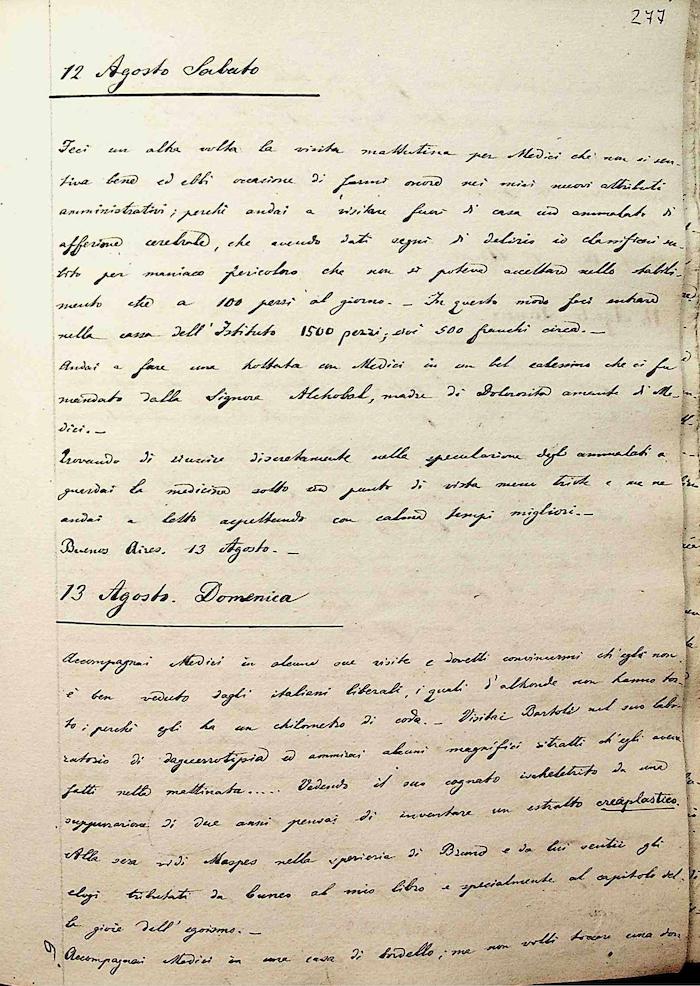 277
12 Agosto Sabato
Feci un altra volta la visita mattutina per Medici che non si sen-
tiva bene ed ebbi occasione di farmi onore nei miei nuovi attributi
amministrativi; perchè andai a visitare fuori di casa un ammalato di
affezione cerebrale, che avendo dati segni di delirio io classificai su-
bito per maniaco pericoloso che non si poteva accettare nello stabili-
mento che a 100 pezzi al giorno. _ In questo modo feci entrare
nella cassa dell'Istituto 1500 pezzi; cioè 500 franchi circa. _
Andai a fare una trottata con Medici in un bel calessino che ci fu
mandato dalla Signora Alchobal, madre di Dolorosita amante di Me-
dici. _
Provando di riuscire discretamente nella speculazione degli ammalati
guardai la medicina sotto un punto di vista meno triste e me ne
andai a letto aspettando con calma tempi migliori. _
Buenos Aires. 13 Agosto. _
13 Agosto. Domenica
Accompagnai Medici in alcune sue visite e dovetti convincermi ch'egli non
è ben veduto dagli italiani liberali, i quali d'altronde non hanno tor-
to; perchè egli ha un chilometro di coda. _ Visitai Bartoli nel suo labo-
ratorio di dagherrotipia ed ammirai alcuni magnifici ritratti ch'egli aveva
fatti nella mattinata..... Vedendo il suo cognato ischeletrito da una
suppurazione di due anni pensai di inventare un estratto creaplastico.
Alla sera vidi Maspes nella spezieria di Brund e da lui sentii gli
elogi tributati da Cuneo al mio libro e specialmente al capitolo del-
le gioie dell'egoismo. _
Accompagnai Medici in una casa di bordello; ma non volli toccare una don